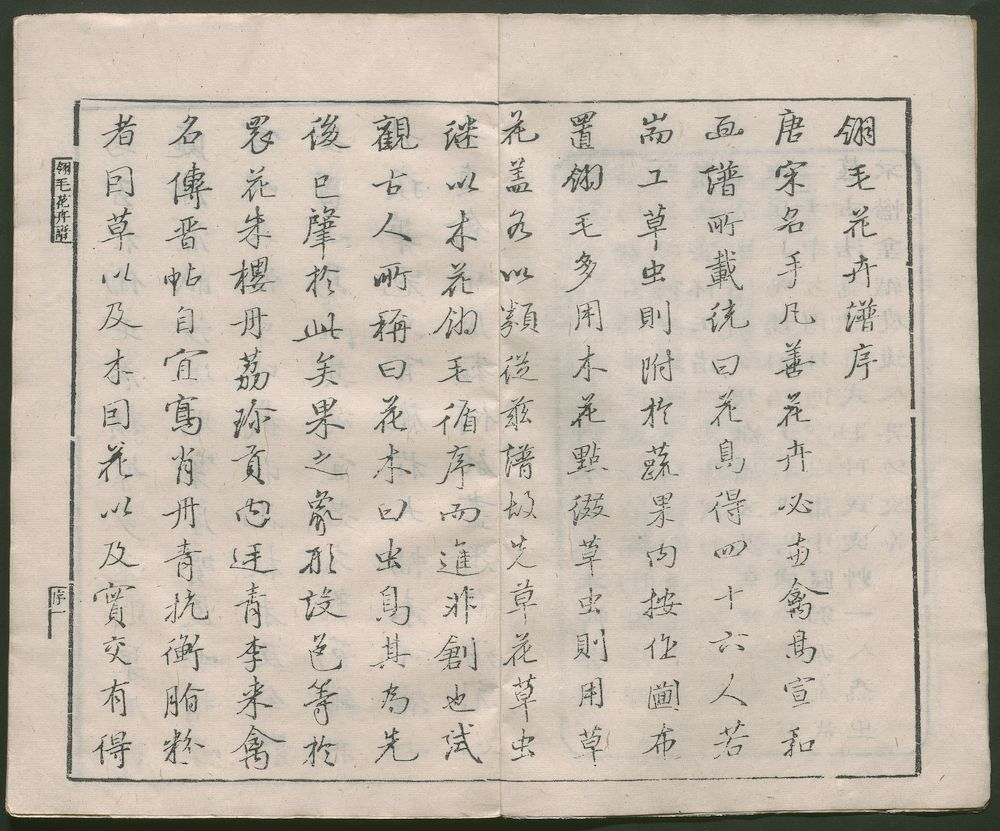 翎毛花卉譜序
唐宋名手凡善花卉必禽鳥宣和
画譜所載统曰花鳥得四十六人若
耑工草虫則附於蔬果内按作圖布
置翎毛多用木花點綴草虫則用草
花蓋各以類從茲譜故先草花草虫
继以木花翎毛循序而進非創也试
觀古人所稱曰花木曰虫鳥其為先
後已肇於此矣果之象形设色等於
眾花朱櫻丹荔珍貢内廷青李来禽
名傳晉帖自宜寫肖丹青抗衡脂粉
者因草以及木因花以及實交有得
翎毛花卉譜
序一